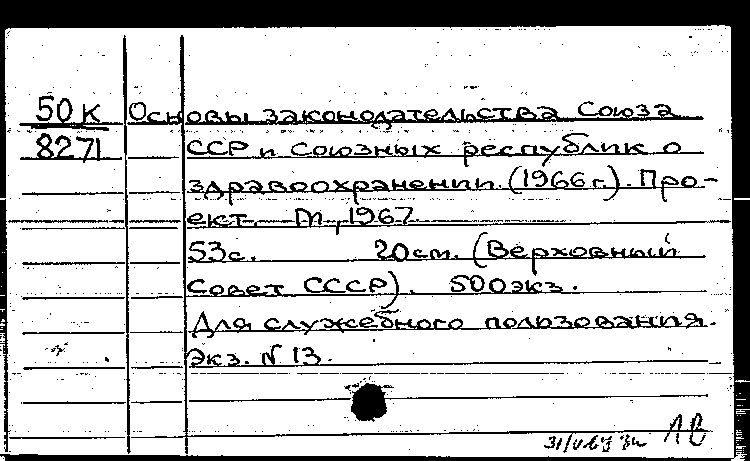 50К Основы законодательства Союза
8271 ССР и союзных республик о
здравоохранении. (1966 г.). Про-
ект. М., 1967
53с. 20см. (Верховный
Совет СССР). 500экз.
Для служебного пользования.
Экз. N 13.
ЛВ